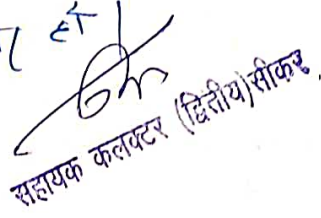 सहायक कलक्टर (द्वितीय) सीकर